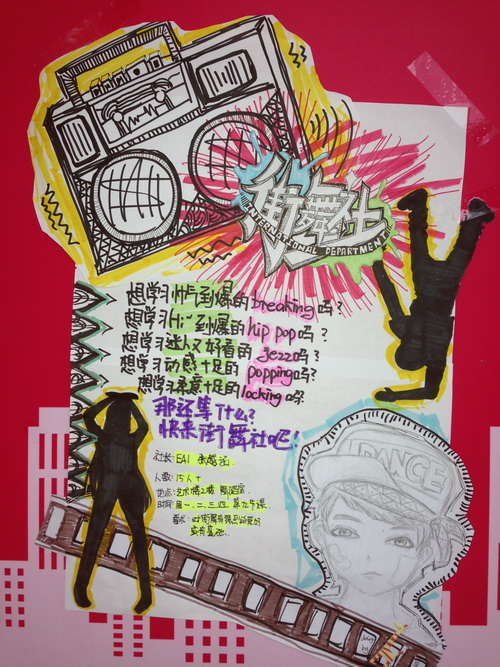 街舞社
INTERNATIONAL DEPARTMENT
想学习帅气到爆的breaking吗?
想学习Hi到爆的hip pop吗?
想学习迷人又好看的jezz吗?
想学习动感十足的popping吗?
想学习柔意十足的locking吗?
那还等什么?
快来街舞社吧!
社长: EA1
人数: 15人+
地点: 艺术楼2楼
时间: 周一、二、三、四 第九节课
要求: 对街舞有
DANCE